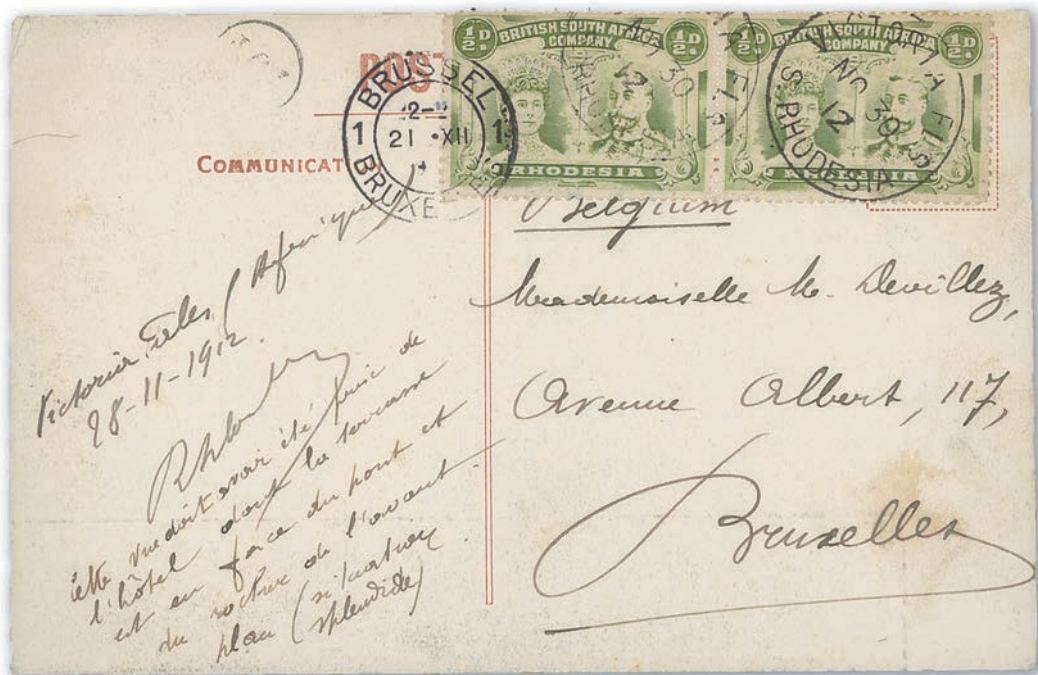 POST
COMMUNICAT
BRUSSEL
1 21 •XII 1
BRUXE
½D. BRITISH SOUTH AFRICA ½D.
COMPANY
RHODESIA
½D. BRITISH SOUTH AFRICA ½D.
COMPANY
RHODESIA
30
12
VICTORIA FA
NO 30
12
S. RHODESIA
Victoria Falls (Afrique
28-11-1912.
cette vue doit avoir été prise de
l'hôtel dont la terrasse
est en face du pont et
du rocher de l'avant
plan (situation
splendide)
Belgium
Mademoiselle M. Devillez,
Avenue Albert, 117,
Bruxelles